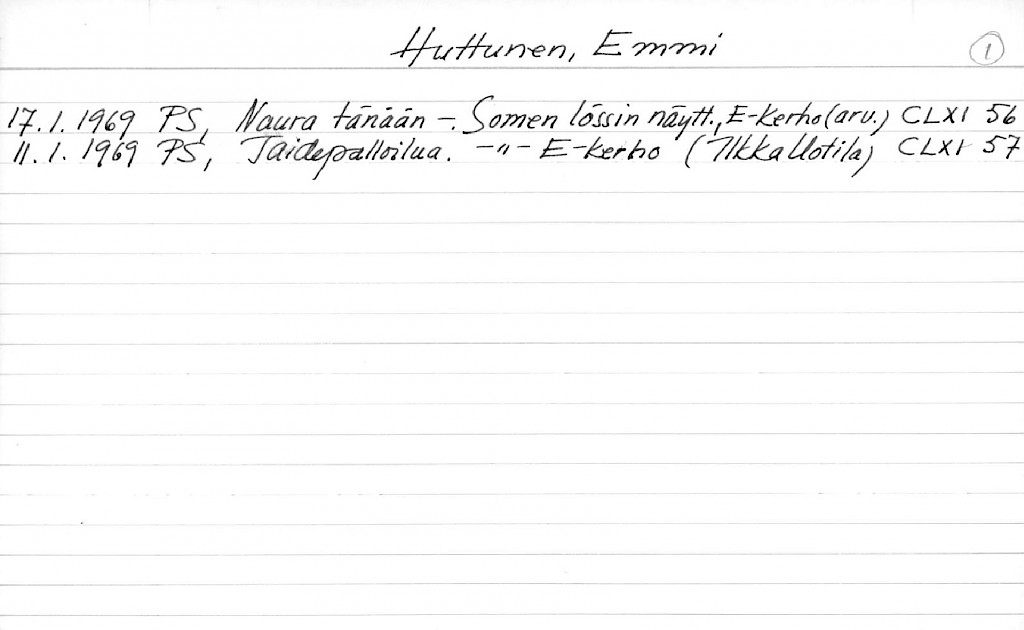 Huttunen, Emmi 1
17.1.1969 PS, Naura tänään -. Somen lössin näytt., E-kerho (arv.) CLXI 56
11.1.1969 PS, Taidepalloilua. -"- E-kerho (Ilkka Uotila) CLXI 57